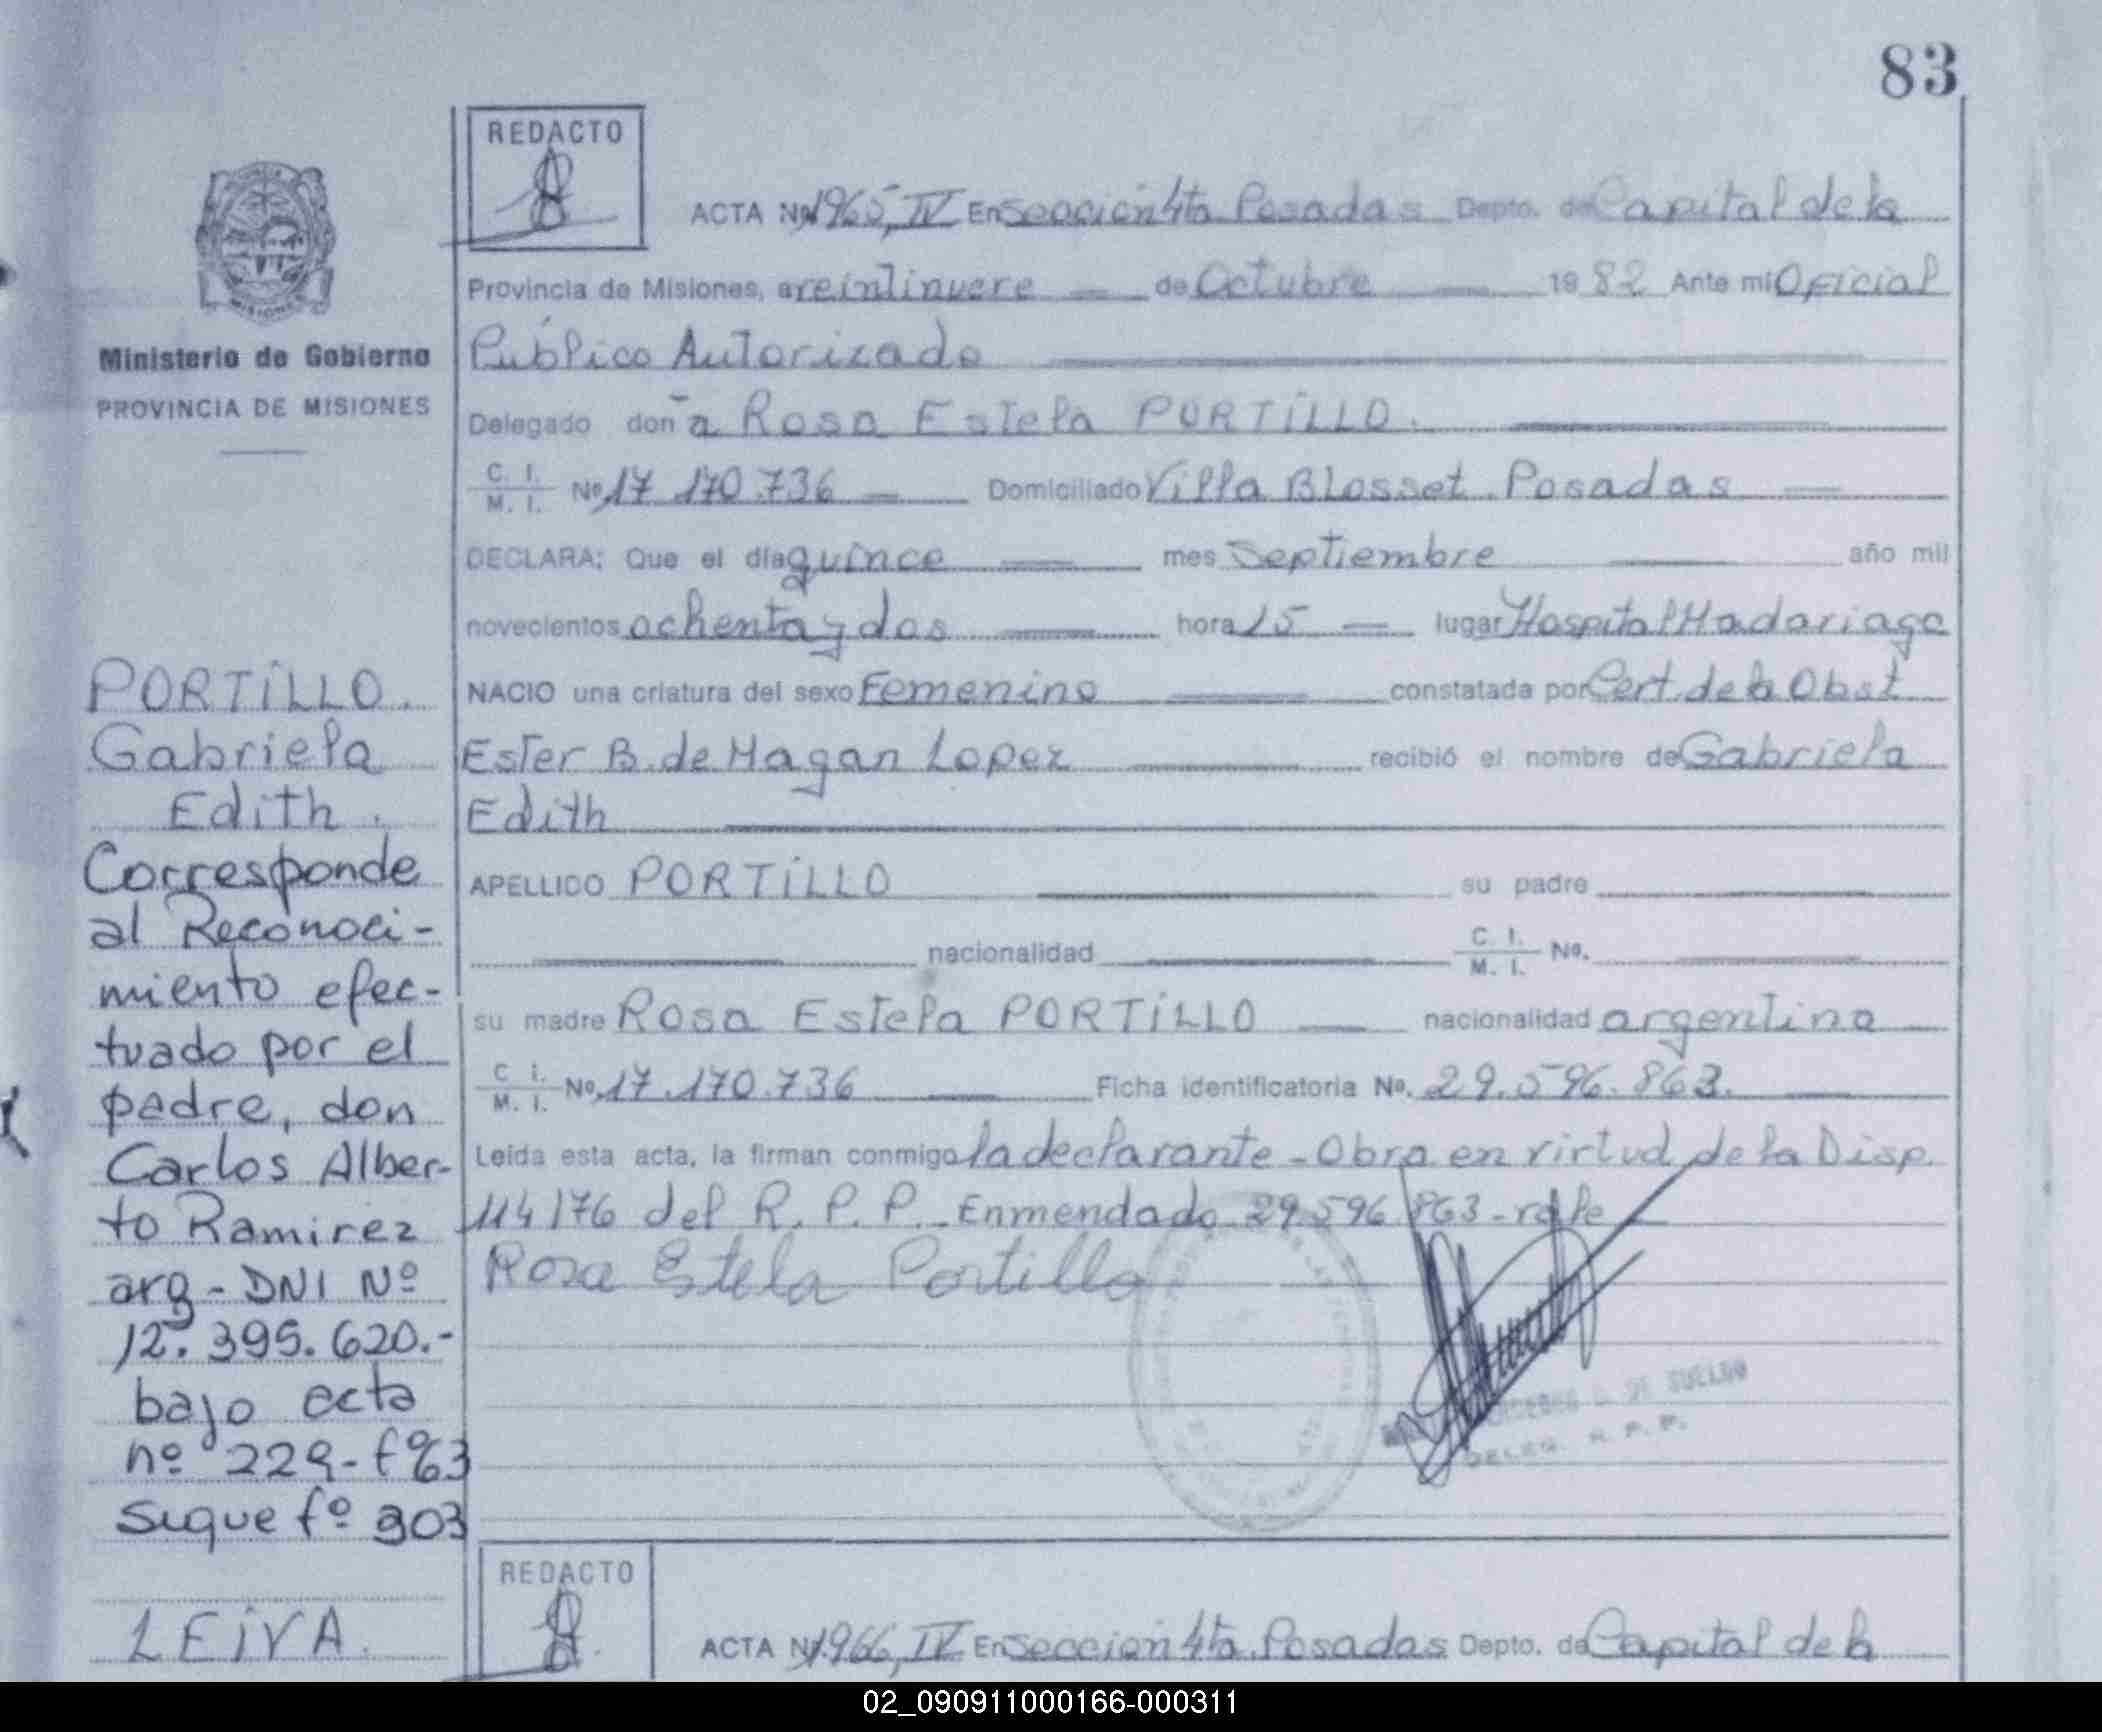 83
REDACTO
ACTA Nº 1965, IV En Sección 4ta Posadas Depto. de Capital de la
Provincia de Misiones, a veintinueve de Octubre 1982 Ante mi Oficial
Público Autorizado
Ministerio de Gobierno
PROVINCIA DE MISIONES
Delegado don̄a Rosa Estela PORTILLO.
C. I. / M. I. Nº 17 170.736 Domiciliado Villa Blosset. Posadas
DECLARA: Que el día quince mes Septiembre año mil
novecientos ochenta y dos hora 15 lugar Hospital Madariaga
NACIO una criatura del sexo Femenino constatada por Cert. de la Obst
Ester B. de Magan Lopez recibió el nombre de Gabriela
Edith
APELLIDO PORTILLO su padre
nacionalidad C. I. / M. I. No.
su madre Rosa Estela PORTILLO nacionalidad argentina
C. I. / M. I. Nº 17.170.736 Ficha identificatoria No. 29.596.863.
Leída esta acta, la firman conmigo la declarante - Obra en virtud de la Disp.
114/76 del R. P. P. - Enmendado 29.596.863 - vale
Rosa Estela Portillo
DE SUELDO
DELEG. R. P. P.
PORTILLO.
Gabriela
Edith.
Corresponde
al Reconoci-
miento efec-
tuado por el
padre, don
Carlos Alber-
to Ramirez
arg - DNI Nº
12.395.620.-
bajo acta
nº 229 - fº 63
Sigue fº 903
LEIVA.
REDACTO
ACTA Nº 1.966, IV En Sección 4ta. Posadas Depto. de Capital de la
02_090911000166-000311